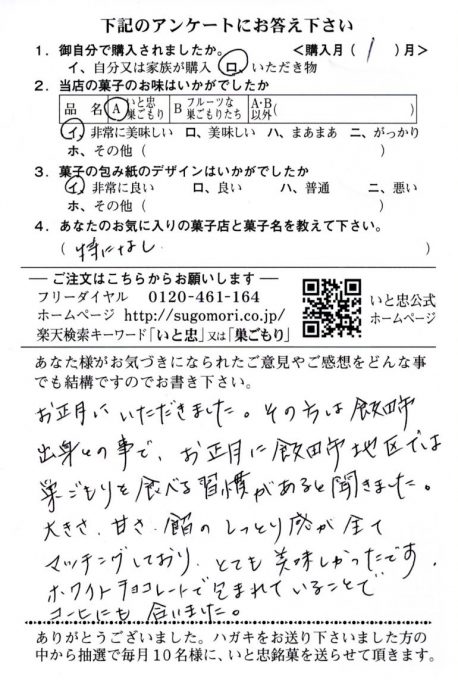 下記のアンケートにお答え下さい
1．御自分で購入されましたか。 ＜購入月（ 1 ）月＞
イ、自分又は家族が購入 ロ、いただき物
2．当店の菓子のお味はいかがでしたか
品 名 A いと忠巣ごもり B フルーツな巣ごもりたち A・B以外（ ）
イ、非常に美味しい ロ、美味しい ハ、まあまあ ニ、がっかり
ホ、その他（ ）
3．菓子の包み紙のデザインはいかがでしたか
イ、非常に良い ロ、良い ハ、普通 ニ、悪い
ホ、その他（ ）
4．あなたのお気に入りの菓子店と菓子名を教えて下さい。
（ 特になし ）
― ご注文はこちらからお願いします ―
フリーダイヤル 0120-461-164
ホームページ http://sugomori.co.jp/
楽天検索キーワード「いと忠」又は「巣ごもり」
いと忠公式
ホームページ
あなた様がお気づきになられたご意見やご感想をどんな事
でも結構ですのでお書き下さい。
お正月にいただきました。その方は飯田市
出身との事で、お正月に飯田市地区では
巣ごもりを食べる習慣があると聞きました。
大きさ、甘さ、餡のしっとり感が全て
マッチングしており、とても美味しかったです。
ホワイトチョコレートで包まれていることで
コーヒーにも合いました。
ありがとうございました。ハガキをお送り下さいました方の
中から抽選で毎月10名様に、いと忠銘菓を送らせて頂きます。